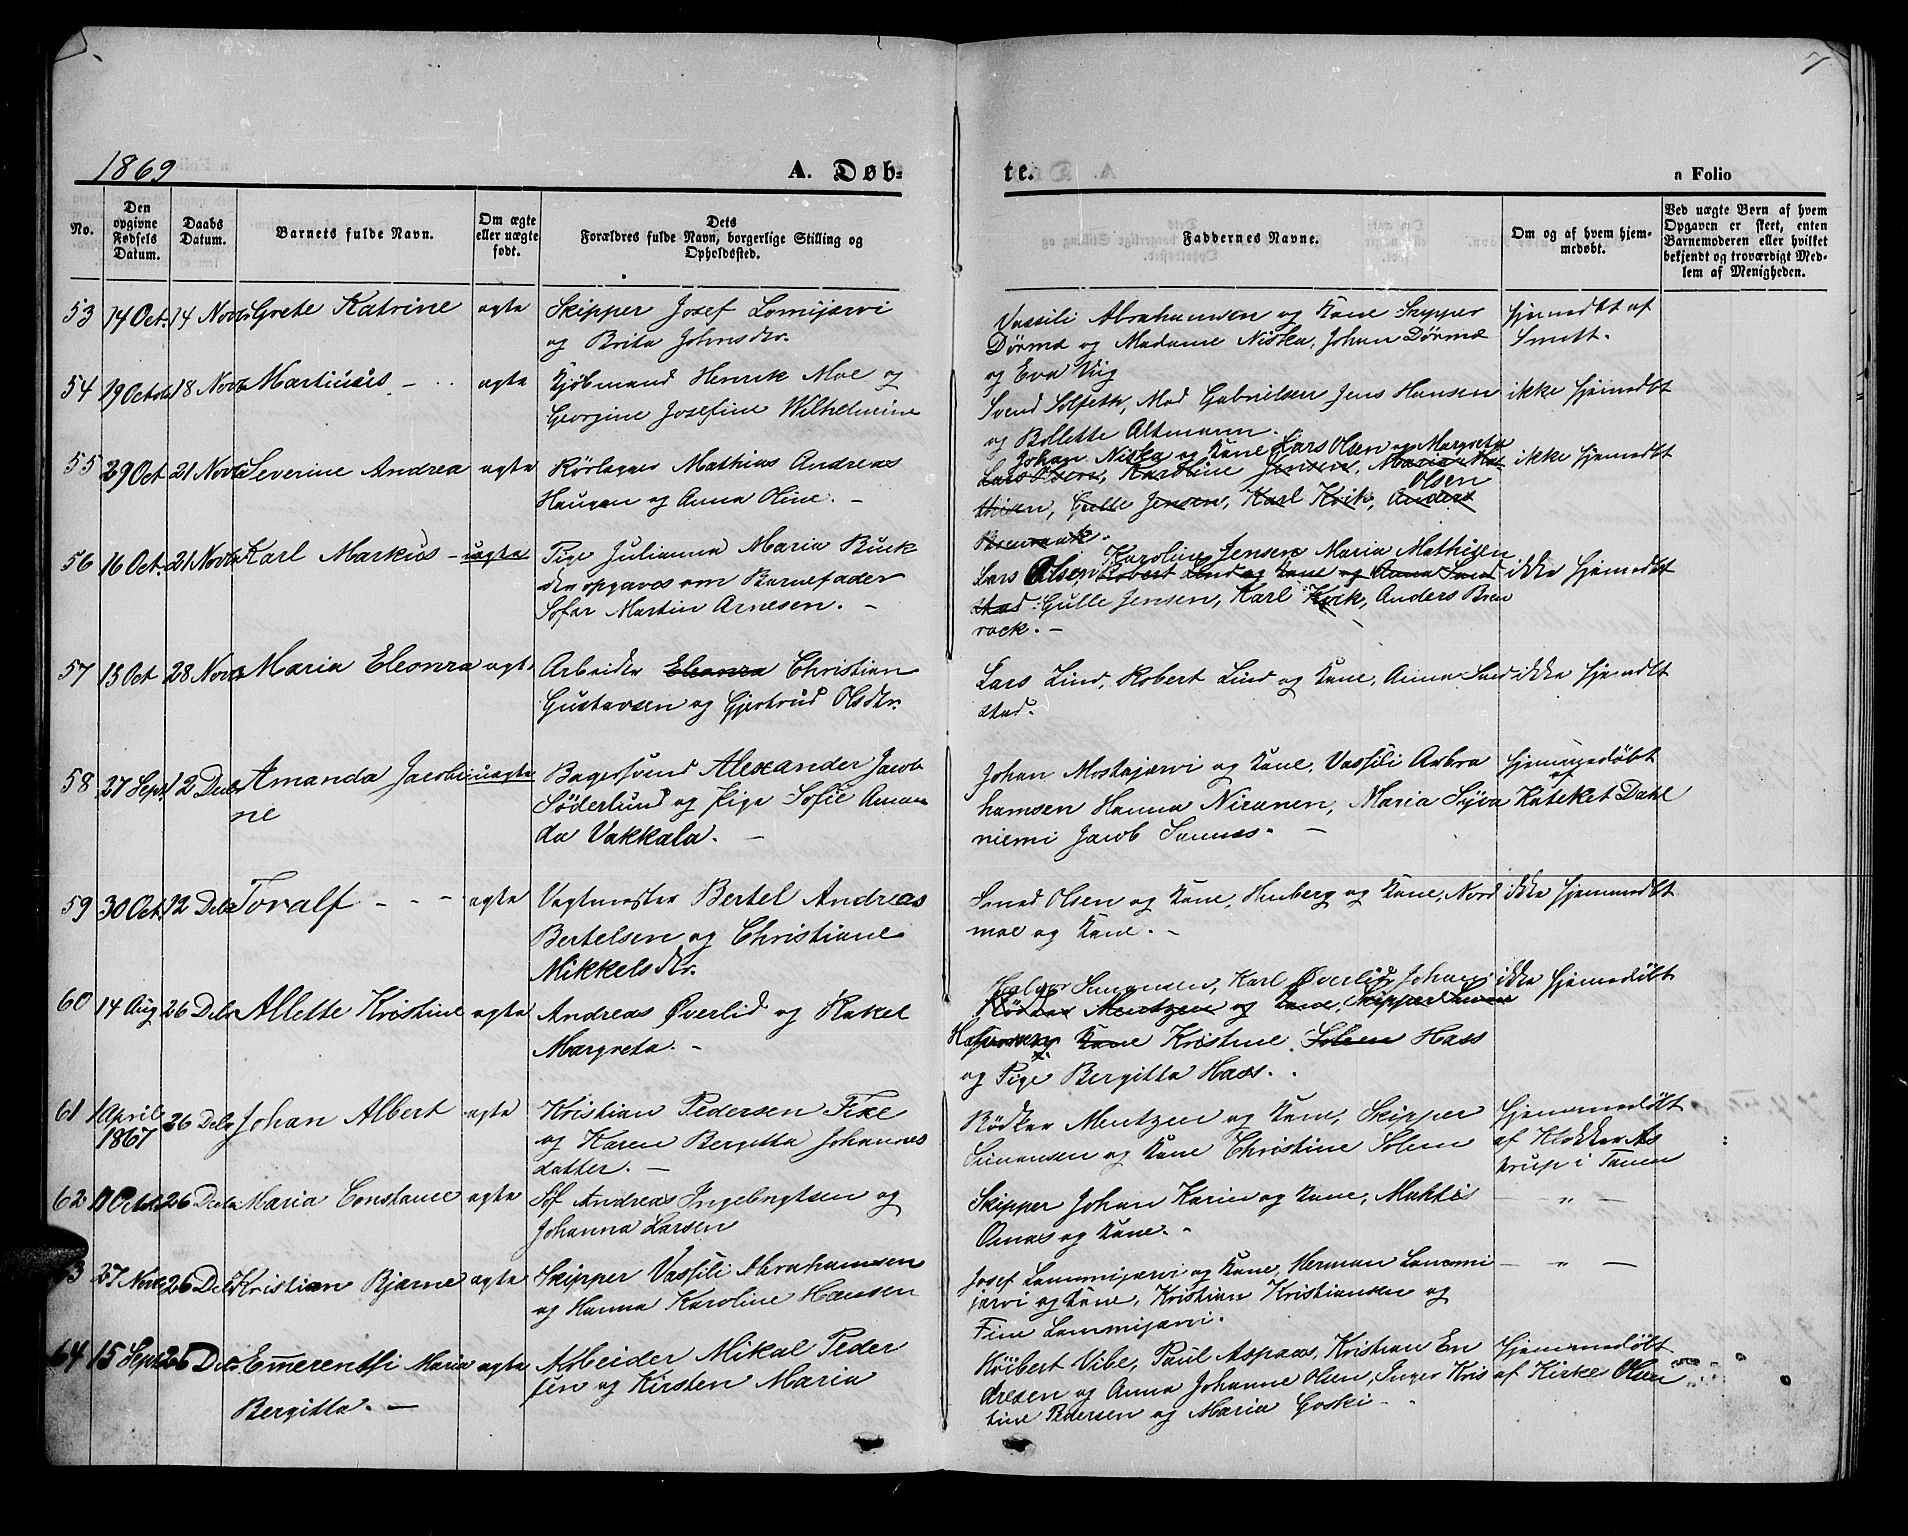 7
1869
A. Døb-
te.
a Folio
No.
Den opgivne Fødsels Datum.
Daabs Datum.
Barnets fulde Navn.
Om ægte eller uægte født.
Dets Forældres fulde Navn, borgerlige Stilling og Opholdssted.
Faddernes Navne.
Om og af hvem hjemmedøbt.
Ved uægte Børn af hvem Opgaven er skeet, enten Barnemoderen eller hvilket bekjendt og troværdigt Medlem af Menigheden.
53 14 Oct. 14 Novbr Grete Katrine ægte Skipper Josef Lomijærvi
og Brita Johnsdtr.
Vassili Abrahamsen og Kone Skipper
Dørmæ og Madame Niska, Johan Dørmæ
og Eva Viig
hjemedbt af
Smitt.
54 19 Octbr 18 Novb Martinus - ægte Kjøbmand Henrik Moe og
Georgine Josefine Wilhelmine
Svend Solseth, Mad Gabrielsen Jens Hansen
og Bollette Altmann.
ikke hjemedbt
55 29 Oct 21 Novb Severine Andrea ægte Rørlægger Mathias Andreas
Haugen og Anna Oline. -
Johan Niska og Kone Lars Olsen og Margreta
Olsen
Lars Olsen, Karoline Jensen, Maria Ma
thisen, Gulle Jensen, Karl Kvik, Anders
Brenvaak.
ikke hjemedbt
56 16 Oct. 21 Novb Karl Markus - uægte Pige Julianna Maria Buck
der opgaves om Barnefader
Sofar Martin Arnesen. -
Karoline Jensen Maria Mathisen
Lars Olsen Robert Lind og Kone og Anna Sand
stad: Gulle Jensen, Karl Kvik, Anders Bren
vack. -
ikke hjemedbt
57 15 Oct 28 Novb Maria Eleonra ægte Arbeider Eleonra Christian
Gustavsen og Gjertrud Olsdtr.
Lars Lind, Robert Lind og Kone, Anna Sand
stad.
ikke hjemdbt
58 27 Sept 12 Decbr Amanda Jacobi
ne
uægte Bagersvend Alexander Jacob
Söderlund og Pige Sofie Aman
da Vakkala. -
Johan Mostajærvi og Kone, Vassili Aabra
hamsen Hanna Niranen, Maria Syva
niemi Jacob Sannes. -
hjemmedøbt
af
Kateket Dahl
59 30 Oct 12 Debr Toralf - - - ægte Vagtmester Bertel Andreas
Bertelsen og Christiane
Mikkelsdtr.
Lensmd Olsen og Kone, Husberg og Kone, Nord
moe og Kone. -
ikke hjemmedbt
60 14 Aug 26 Debr Allette Kristine ægte Andreas Øverlid og Rakel
Margreta. -
Holger Simonsen, Karl Øverlid, Johan
Rødker Mentzen og Kone, Skipper Simon
Kone Kristine Solem Hass
og Pige Bergitta Hass.
ikke hjemedøbt
61 1 April
1867
26 Debr Johan Albert ægte Kristian Pedersen Fixe
og Karen Bergitta Johannes
datter. -
Bødker Mentzen og Kone, Skipper
Simonsen og Kone Christine Solem
hjemmedøbt
af Klokker As
trup i Tanen
62 11 Octbr 26 Decbr Maria Constance ægte Sof Andreas Ingebrigtsen og
Johanna Larsen
Skipper Johan Karin og Kone, Mahtis
Omas og Kone. -
- " -
63 27 Nov 26 Debr Kristian Bjarne ægte Skipper Vassili Abrahamsen
og Hanna Karoline Hansen
Josef Lammijærvi og Kone, Herman Lammi
jærvi og Kone, Kristian Kristiansen og
Fine Lammijærvi.
- " -
64 15 Sept 26 Debr Emerentsi Maria
Bergitta. -
ægte Arbeider Mikal Peder
sen og Kirsten Maria
Röibert Vibe, Paul Aspaas, Kristian En
dresen og Anna Johanne Olsen, Inger Kris
tine Pedersen og Maria Goski -
hjemmedøbt
af Kirke Olsen